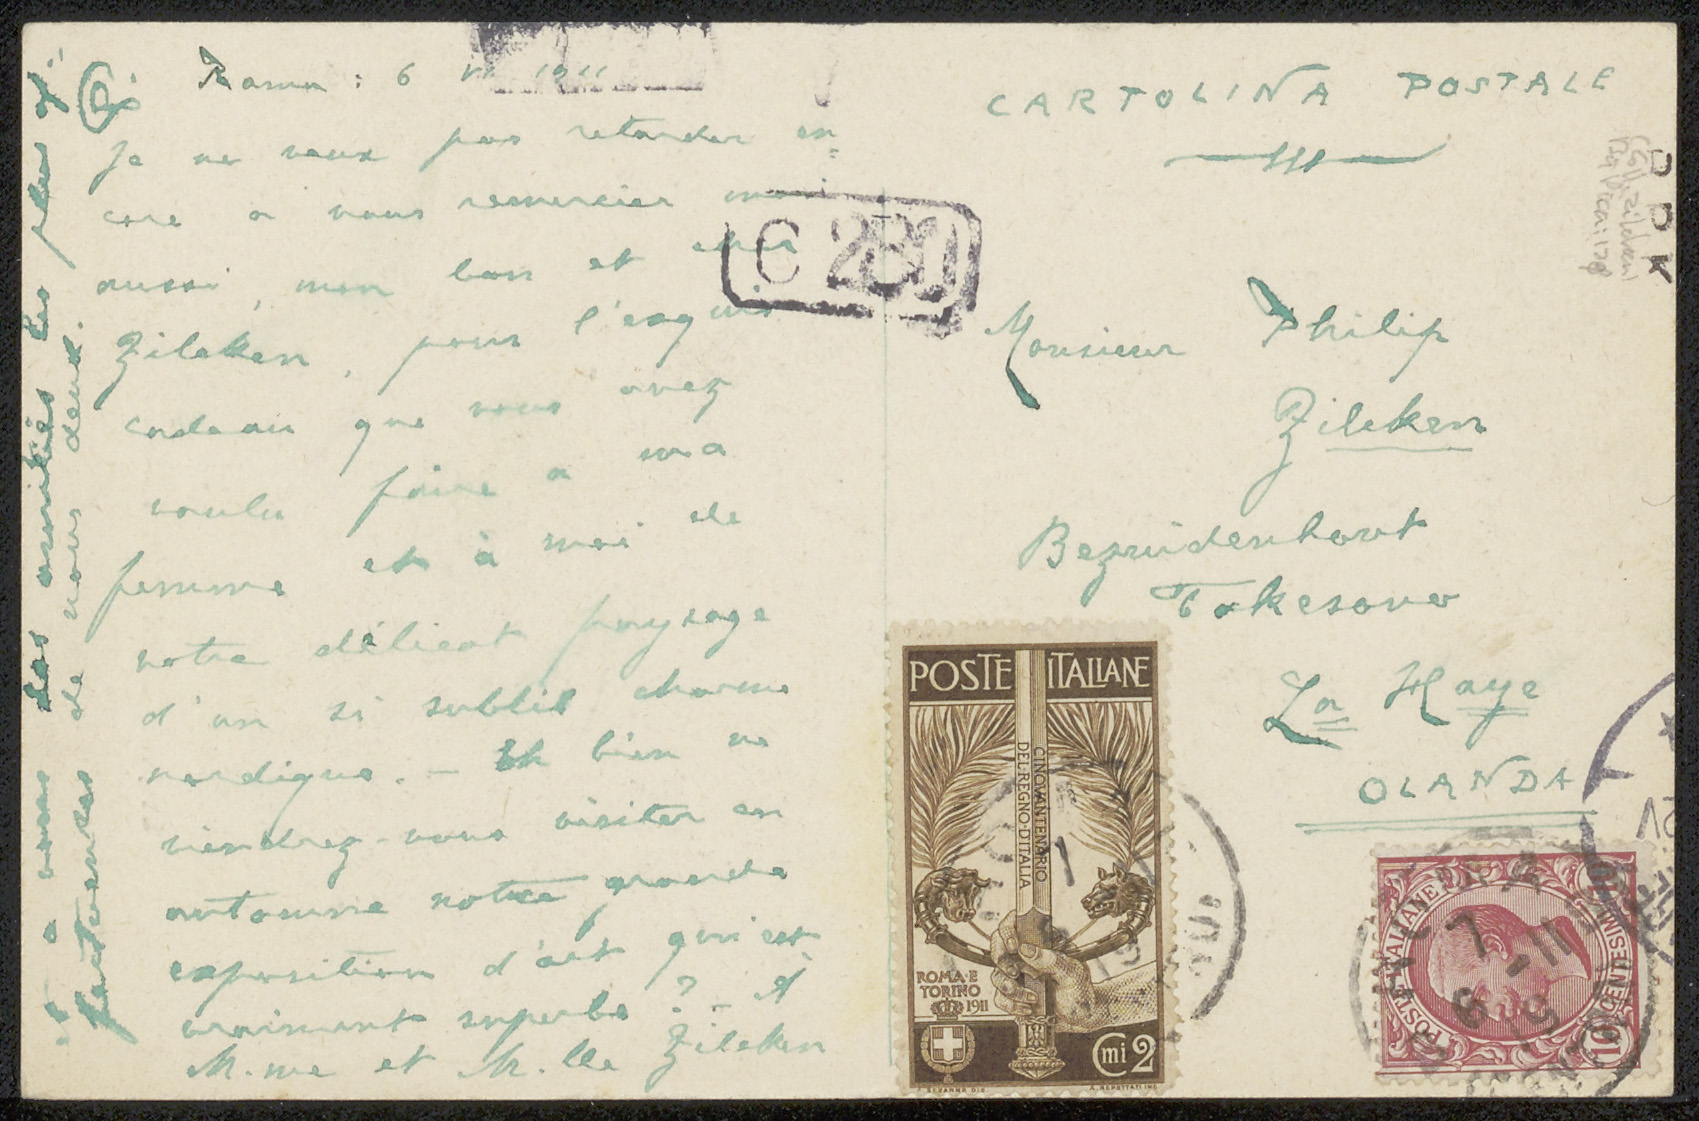 Roma : 6 VI 1911
Je ne veux pas retarder en=
core a vous remercier moi
aussi, mon bon et cher
Zilcken, pour l'exquis
cadeau que vous avez
voulu faire a ma
femme et à moi de
notre délicat paysage
d'un si subtil charme
nordique. — Eh bien ne
viendrez-vous visiter en
automne notre grande
exposition d'art qui est
vraiment superbe ? — A
M.me et M.lle Zilcken
et a vous les amitiés les plus
de nous deux.
CARTOLINA POSTALE
C 280
Monsieur Philip
Zilcken
Bezuidenhout
La Haye
OLANDA
P P K
POSTE ITALIANE
CINQVANTENARIO
DEL REGNO D'ITALIA
ROMA E
TORINO
1911
Cmi 2
POSTE ITALIANE
CENTESIMI 10